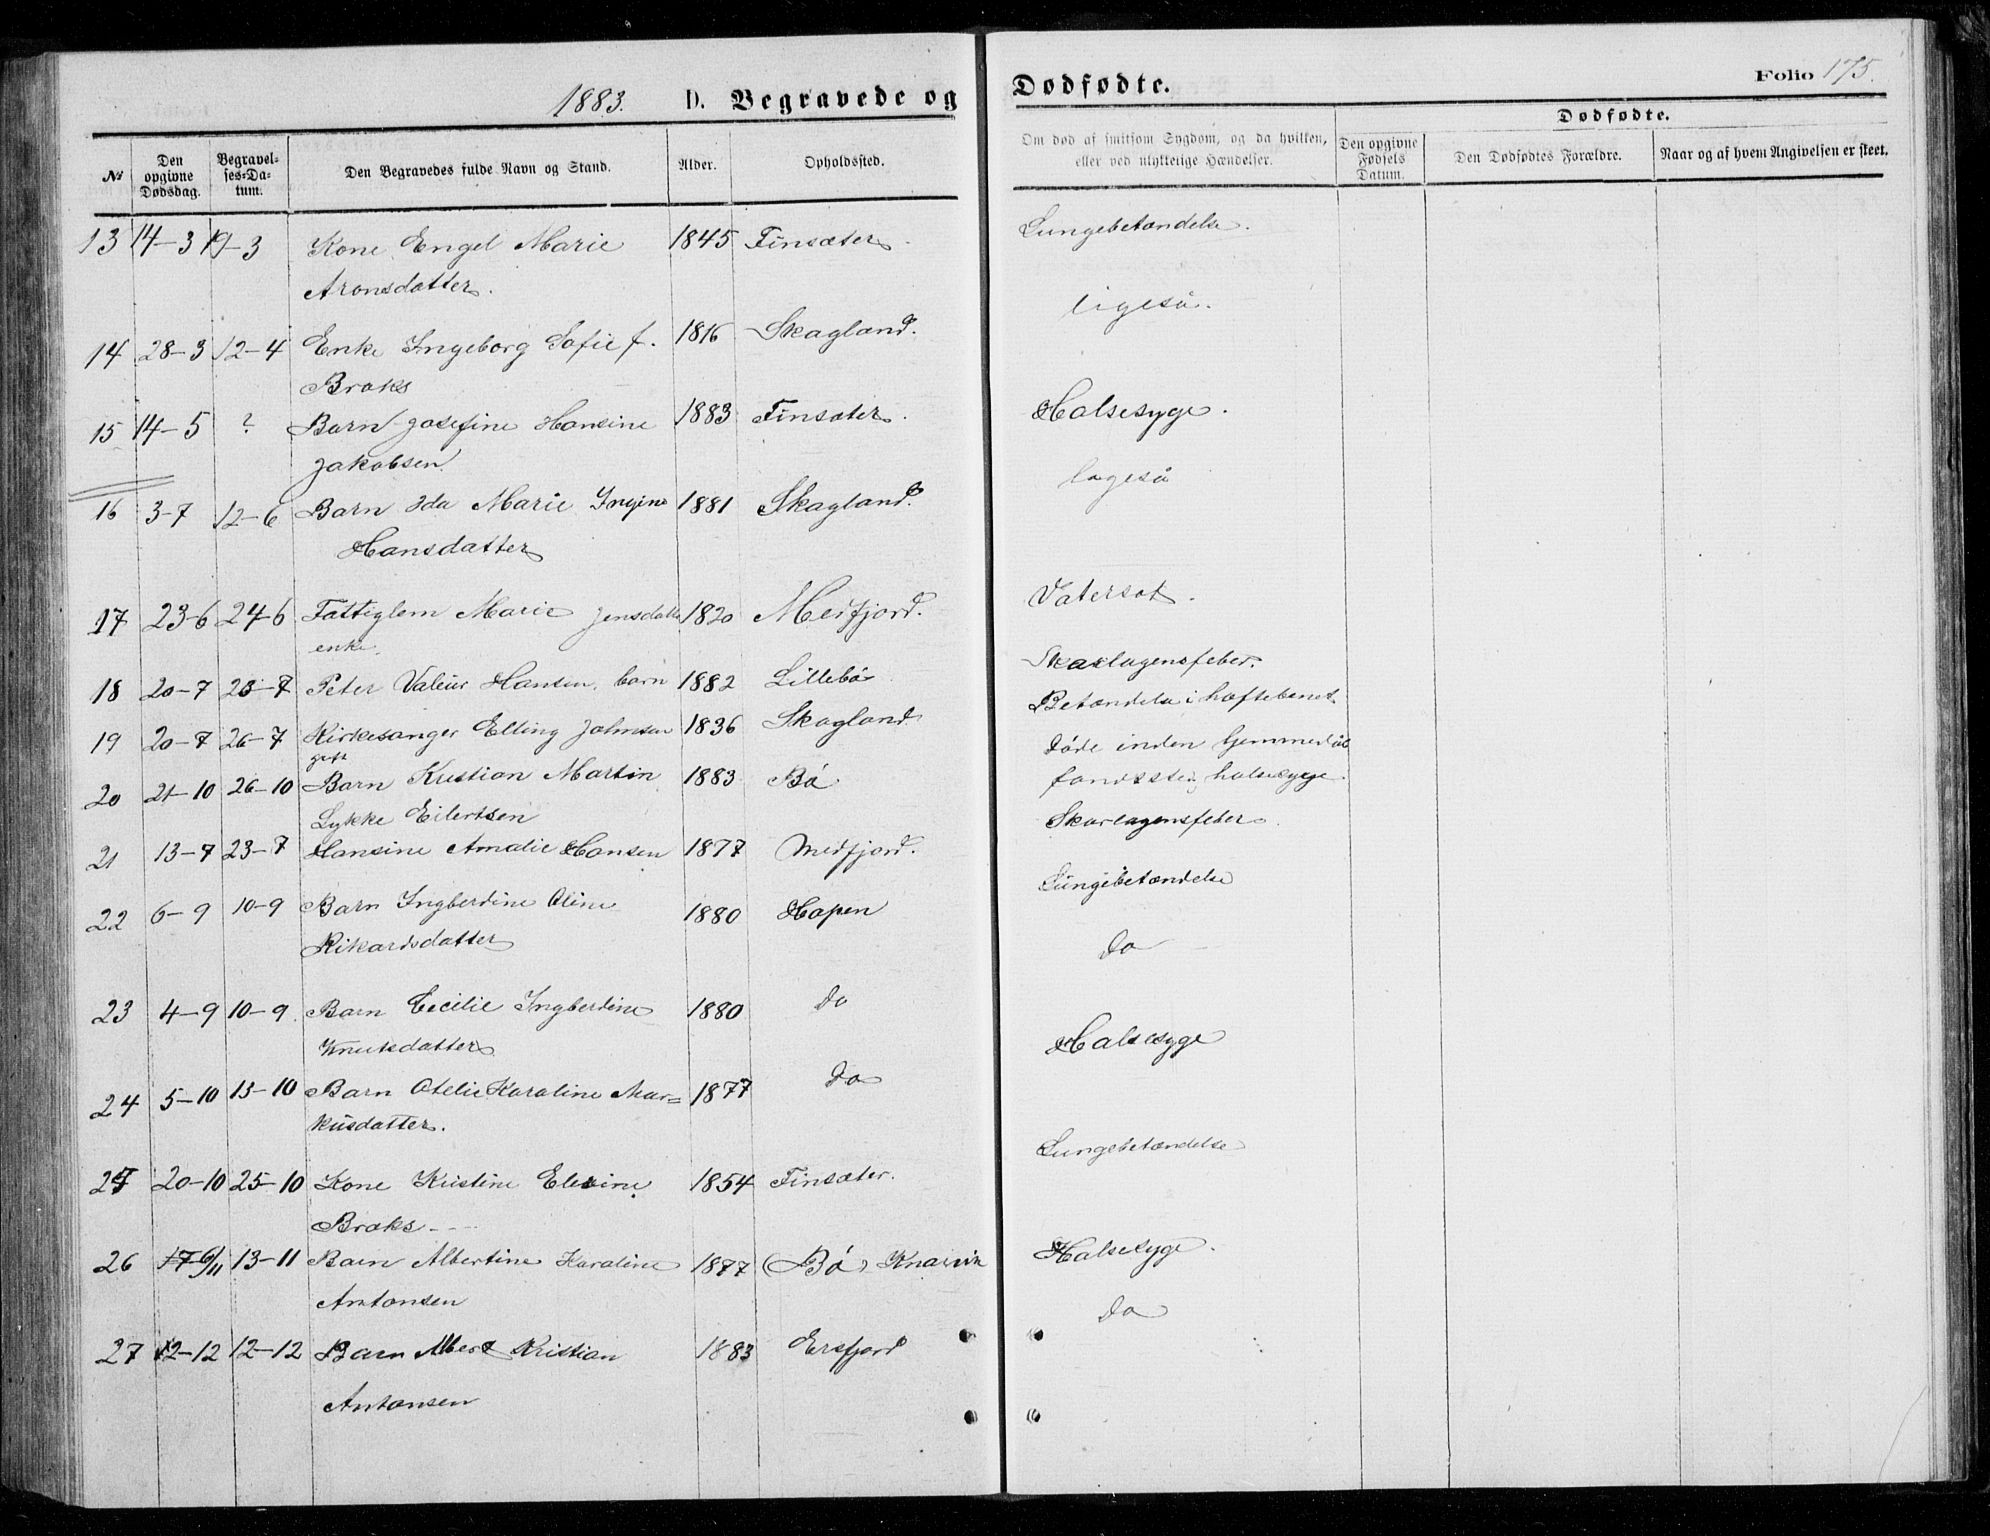 1883. D. Begravede og Dødfødte. Folio 175.
Dødfødte.
№ Den opgivne Dødsdag. Begravelses-Datum. Den Begravedes fulde Navn og Stand. Alder. Opholdssted. Om død af smitsom Sygdom, og da hvilken, eller ved ulykkelige Hændelser. Den opgivne Fødsels Datum. Den Dødfødtes Forældre. Naar og af hvem Angivelsen er skeet.
13 14-3 19-3 Kone Engel Marie 1845 Finsæter. Lungebetændelse.
Aronsdatter.
ligeså.
14 28-3 12-4 Enke Ingeborg Sofie f. 1816 Skagland.
Braks
15 14-5 ? Barn Josefine Hansine 1883 Finsæter. Halsesyge.
Jakobsen
ligeså
16 3-7 12-6 Barn Ida Marie 1881 Skagland.
Hansdatter
17 23-6 24-6 Fattiglem Marie Jensdatter 1820 Medfjord. Vatersot.
enke.
18 20-7 23-7 Peter Valeur Hansen. barn 1882 Lillebø Skarlagensfeber.
19 20-7 26-7 Kirkesanger Elling Johnsen 1836 Skagland Betændelse i hoftebenet
gift
20 21-10 26-10 Barn Kristian Martin 1883 Bø døde inden hjemmedåb
Lykke Eilertsen fandt sted, halsesyge.
21 13-7 23-7 Hansine Amalie Hansen 1877 Medfjord. Skarlagensfeber.
22 6-9 10-9 Barn Ingberdine Oline 1880 Hopen Lungebetændelse
Rikardsdatter
do
23 4-9 10-9 Barn Cecilie Ingberdine 1880 do
Knutsdatter
Halsesyge
24 5-10 13-10 Barn Otelie Karoline Mar= 1877 do
kusdatter.
25 20-10 25-10 Kone Kristine Elesine 1854 Finsæter. Lungebetændelse
Braks
26 6/11 13-11 Barn Albertine Karoline 1877 (Bø) Knarvik Halsesyge.
Antonsen
do
27 12-12 12-12 Barn Albert Kristian 1883 Ersfjord
Antonsen